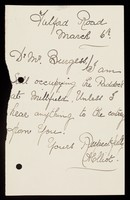 Fulford Road
March 6th
Dr Mr. Burgess,
I am
Still occupying the Paddock
at Millfield. Unless I
hear anything to the contrary
from you.
Yours Respectfully